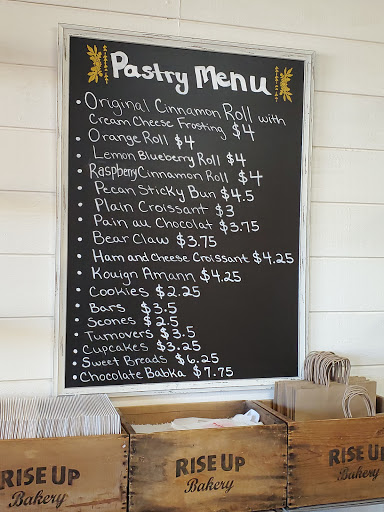 Pastry Menu
• Original Cinnamon Roll with
Cream Cheese Frosting $4
• Orange Roll $4
• Lemon Blueberry Roll $4
• Raspberry Cinnamon Roll $4
• Pecan Sticky Bun $4.5
• Plain Croissant $3
• Pain au Chocolat $3.75
• Bear Claw $3.75
• Ham and Cheese Croissant $4.25
• Kouign Amann $4.25
• Cookies $2.25
• Bars $3.5
• Scones $2.5
• Turnovers $3.5
• Cupcakes $3.25
• Sweet Breads $6.25
• Chocolate Babka $7.75
RISE UP
Bakery
RISE UP
Bakery
RISE UP
Bakery